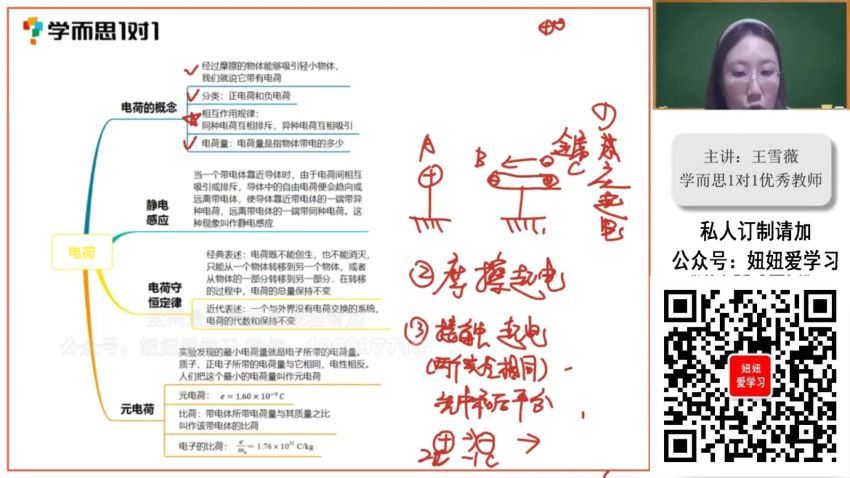 学而思1对1
经过摩擦的物体能够吸引轻小物体，
我们就说它带有电荷
分类：正电荷和负电荷
电荷的概念
相互作用规律：
同种电荷互相排斥，异种电荷互相吸引
电荷量：电荷量是指物体带电的多少
当一个带电体靠近导体时，由于电荷间相互
吸引或排斥，导体中的自由电荷便会趋向或
远离带电体，使导体靠近带电体的一端带异
种电荷，远离带电体的一端带同种电荷。这
种现象叫作静电感应
静电
感应
电荷
经典表述：电荷既不能创生，也不能消灭，
只能从一个物体转移到另一个物体，或者
从物体的一部分转移到另一部分．在转移
的过程中，电荷的总量保持不变
电荷守
恒定律
近代表述：一个与外界没有电荷交换的系统，
电荷的代数和保持不变
实验发现的最小电荷量就是电子所带的电荷量。
质子、正电子所带的电荷量与它相同，电性相反。
人们把这个最小的电荷量叫作元电荷
元电荷
元电荷： e = 1.60 × 10⁻¹⁹ C
比荷：带电体所带电荷量与其质量之比
叫作该带电体的比荷
电子的比荷： e/mₑ = 1.76 × 10¹¹ C/kg
A
B
金属
C
①
起电
② 摩擦起电
③ 接触起电
(两个完全相同)
先中和后平分
2C
-1C
主讲：王雪薇
学而思1对1优秀教师
私人订制请加
公众号：妞妞爱学习
妞妞
爱学习